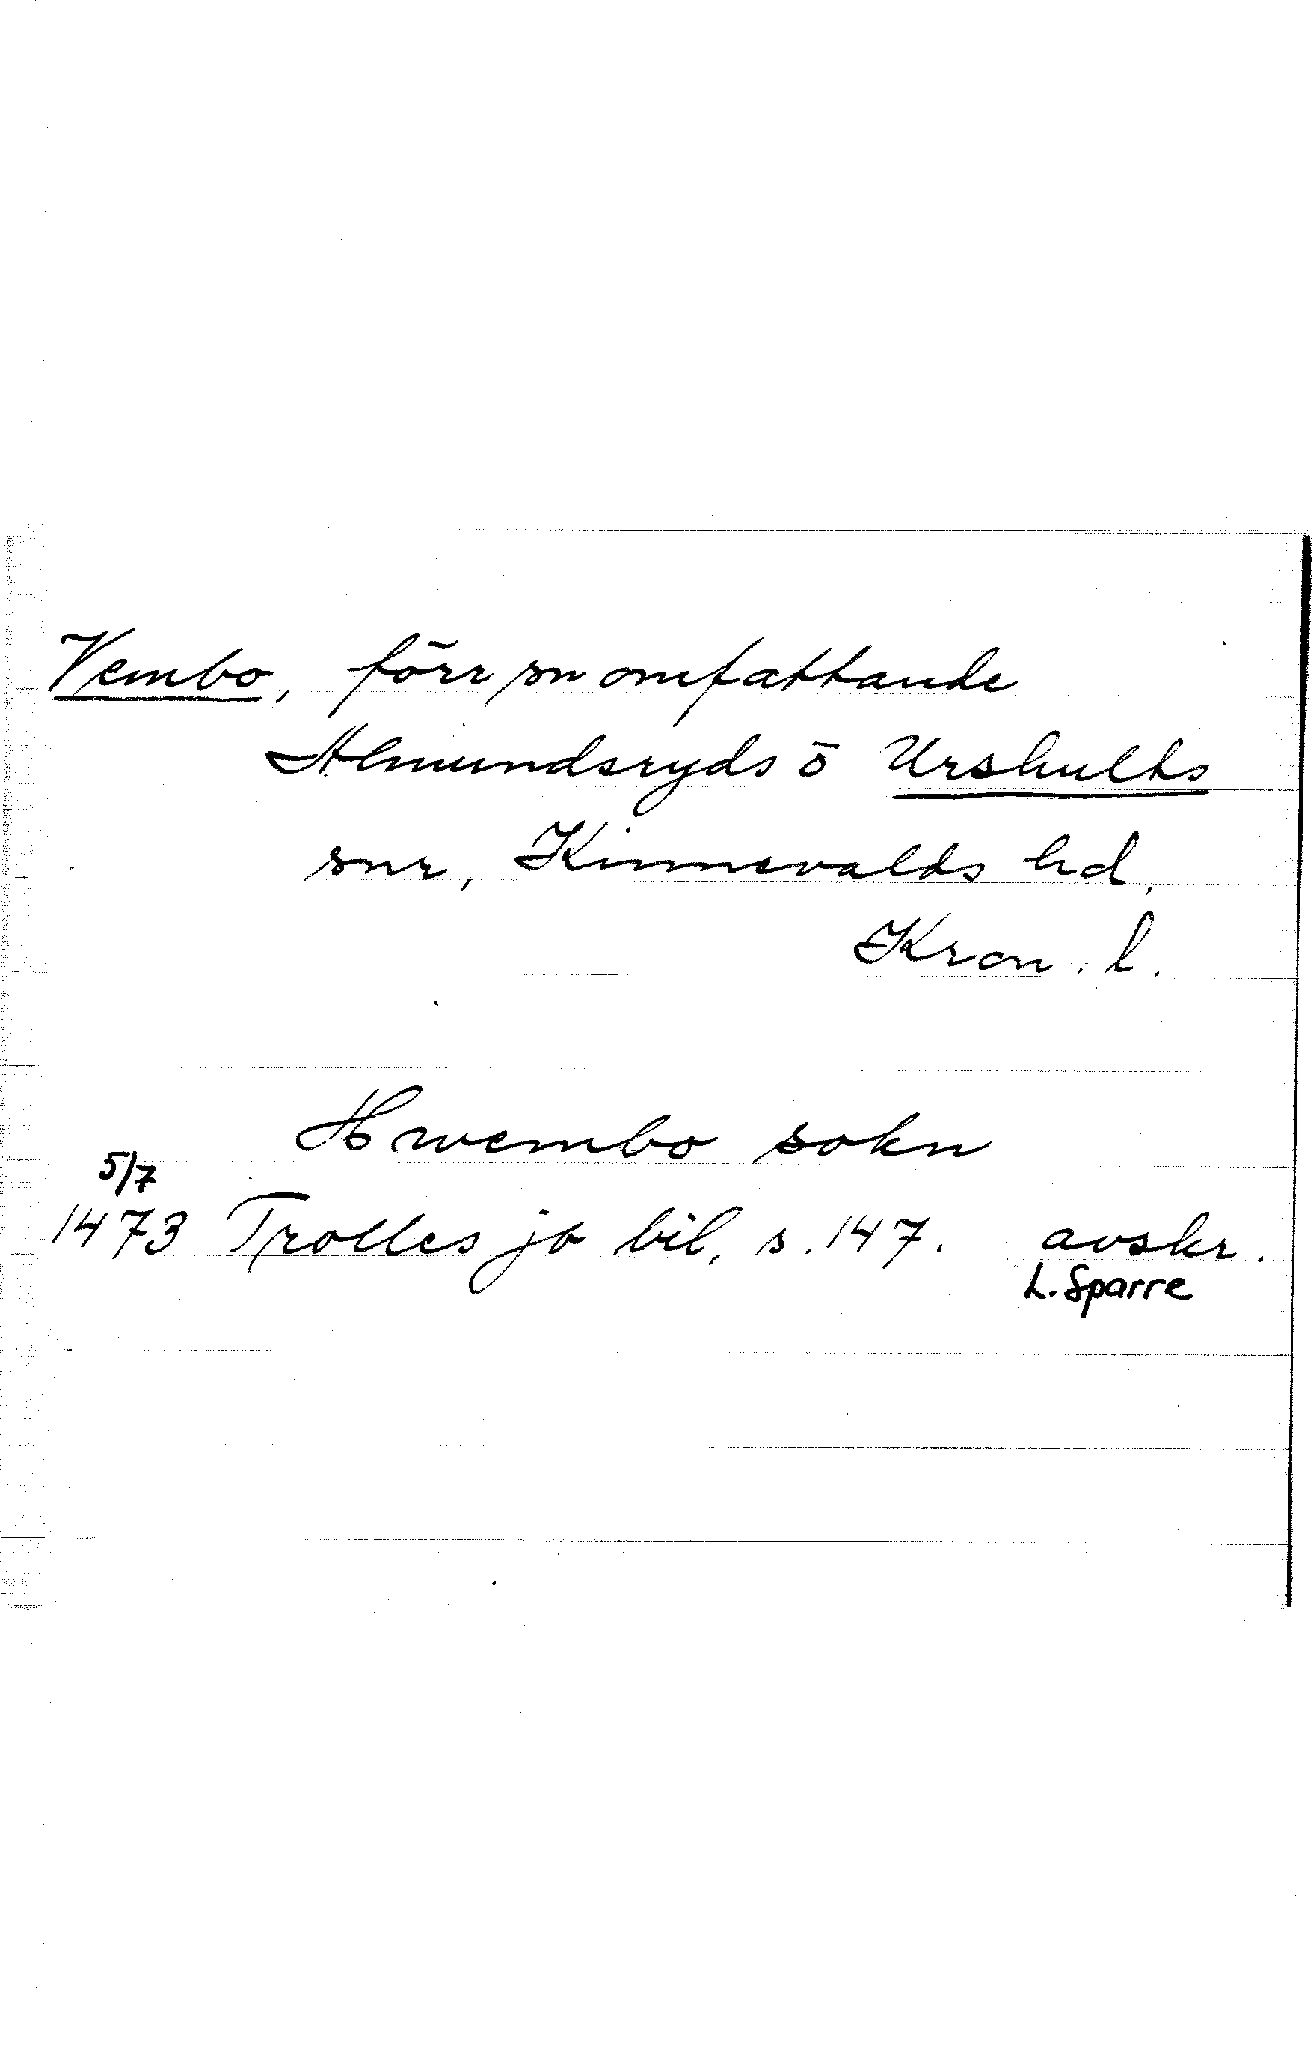 Vembo, förr sn omfattande
Almundsryds o Urshults
snr, Kinnevalds hd,
Kron. l.
Hwembo sokn
5/7
1473 Trolles jb bil, s. 147. avskr.
L. Sparre